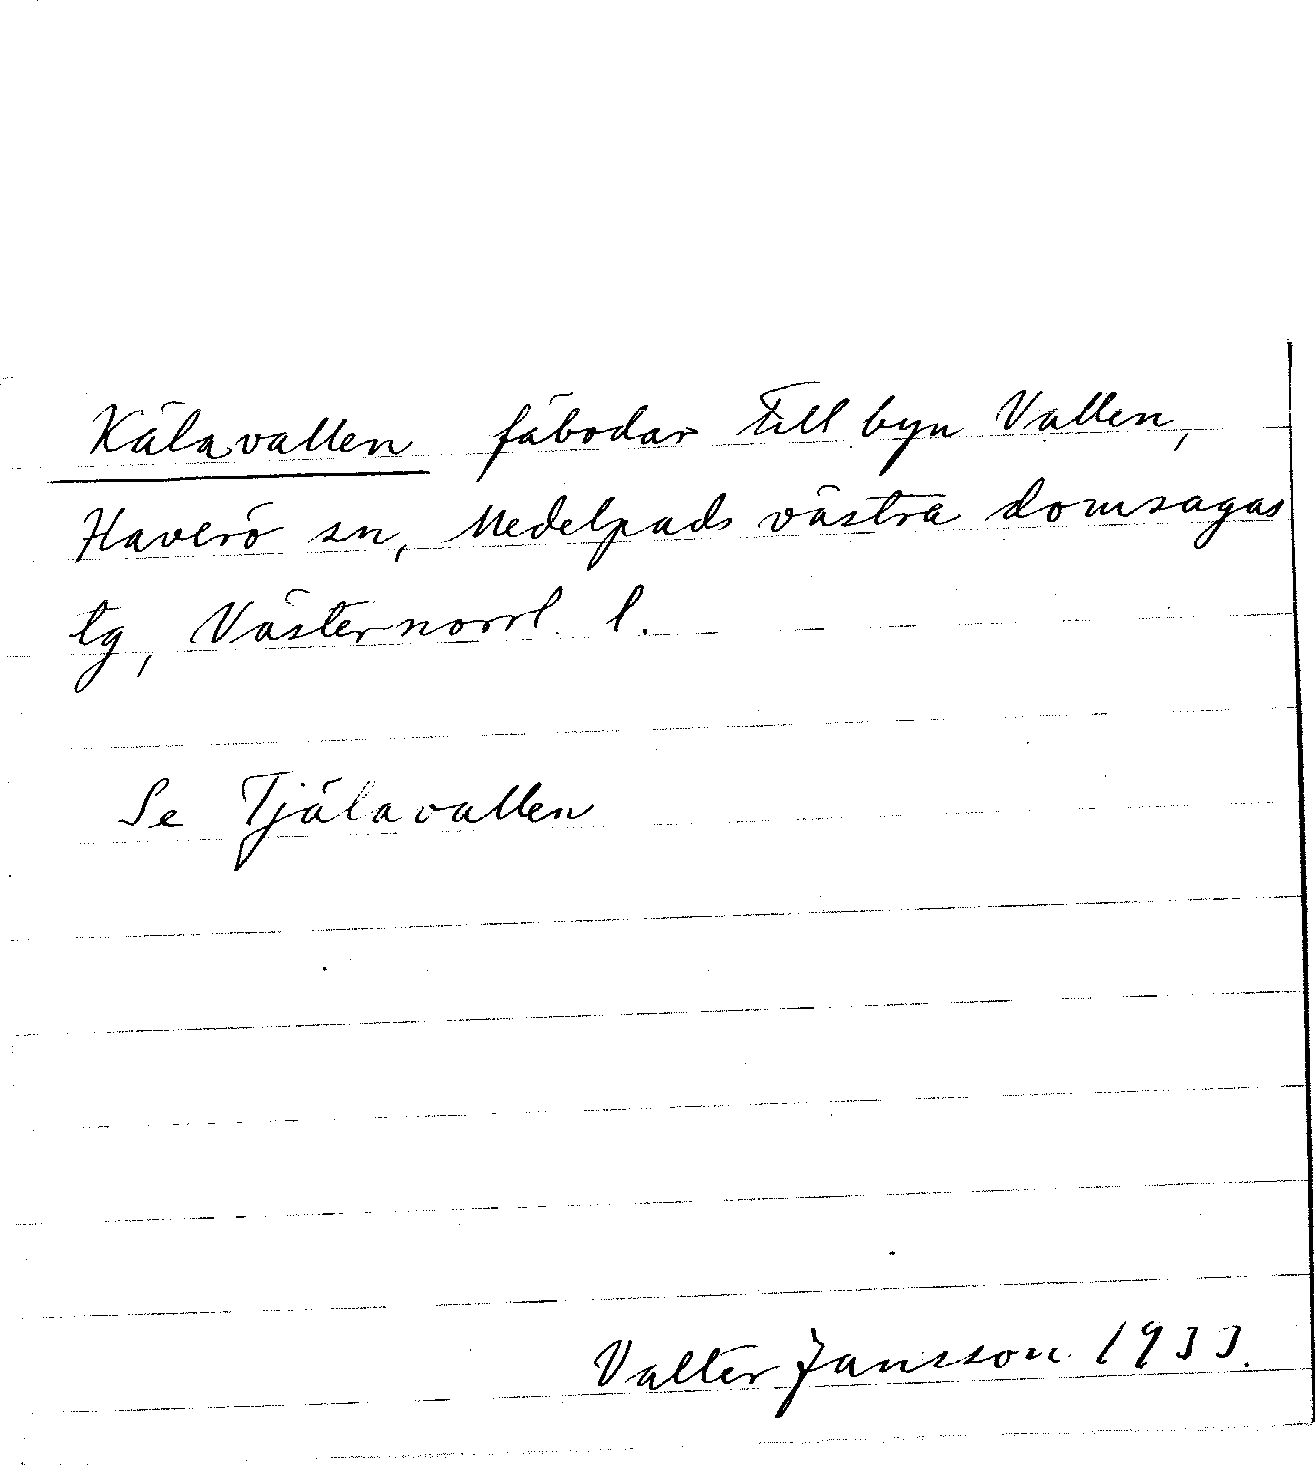 Kälavallen fäbodar till byn Vallen,
Haverö sn, Medelpads västra domsagas
tg, Västernorrl. l.
Se Tjälavallen
Valter Jansson 1933.